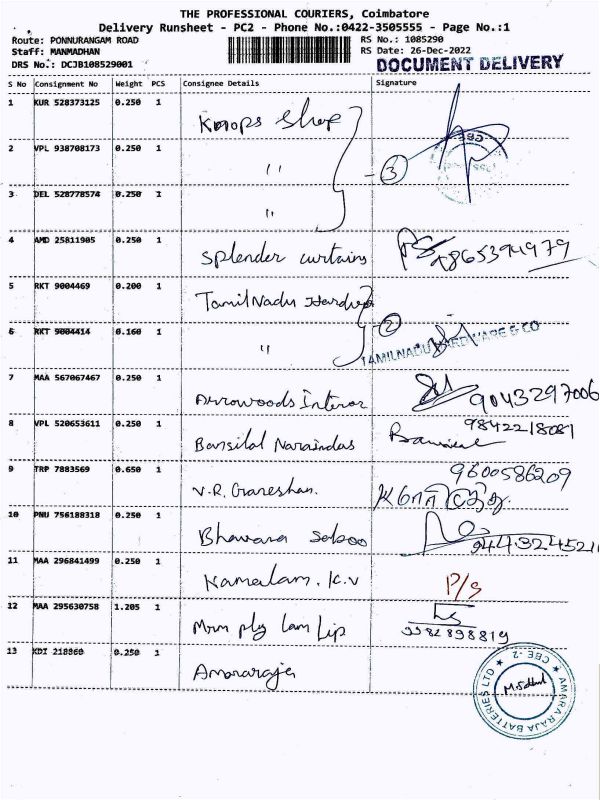 THE PROFESSIONAL COURIERS, Coimbatore
Delivery Runsheet - PC2 - Phone No.:0422-3505555 - Page No.:1
Route: PONNURANGAM ROAD RS No.: 1085290
Staff: MANMADHAN RS Date: 26-Dec-2022
DRS No.: DCJB108529001 DOCUMENT DELIVERY
S No Consignment No Weight PCS Consignee Details Signature
1 KUR 528373125 0.250 1 Shop
2 VPL 938708173 0.250 1 " 3
3 DEL 528778574 0.250 1 "
4 AMD 25811905 0.250 1 Splender curtains 9865394979
5 RKT 9004469 0.200 1 TamilNadu Hardware
6 RKT 9004414 0.160 1 " 2 TAMILNADU HARDWARE & CO
7 MAA 567067467 0.250 1 Arrowoods Interior 9043297006
8 VPL 520653611 0.250 1 Bansilal Naraindas 9842218081
9 TRP 7883569 0.650 1 V.R. Ganeshan. 9600586209
10 PNU 756188318 0.250 1 Bhavana Saboo
11 MAA 296841499 0.250 1 Kamalam. K.V P/S
12 MAA 295630758 1.205 1 Mrm ply lam Lip 9982898819
13 KDI 218860 0.250 1 Amararaja
AMARA RAJA BATTERIES LTD ★ CBE-2 ★